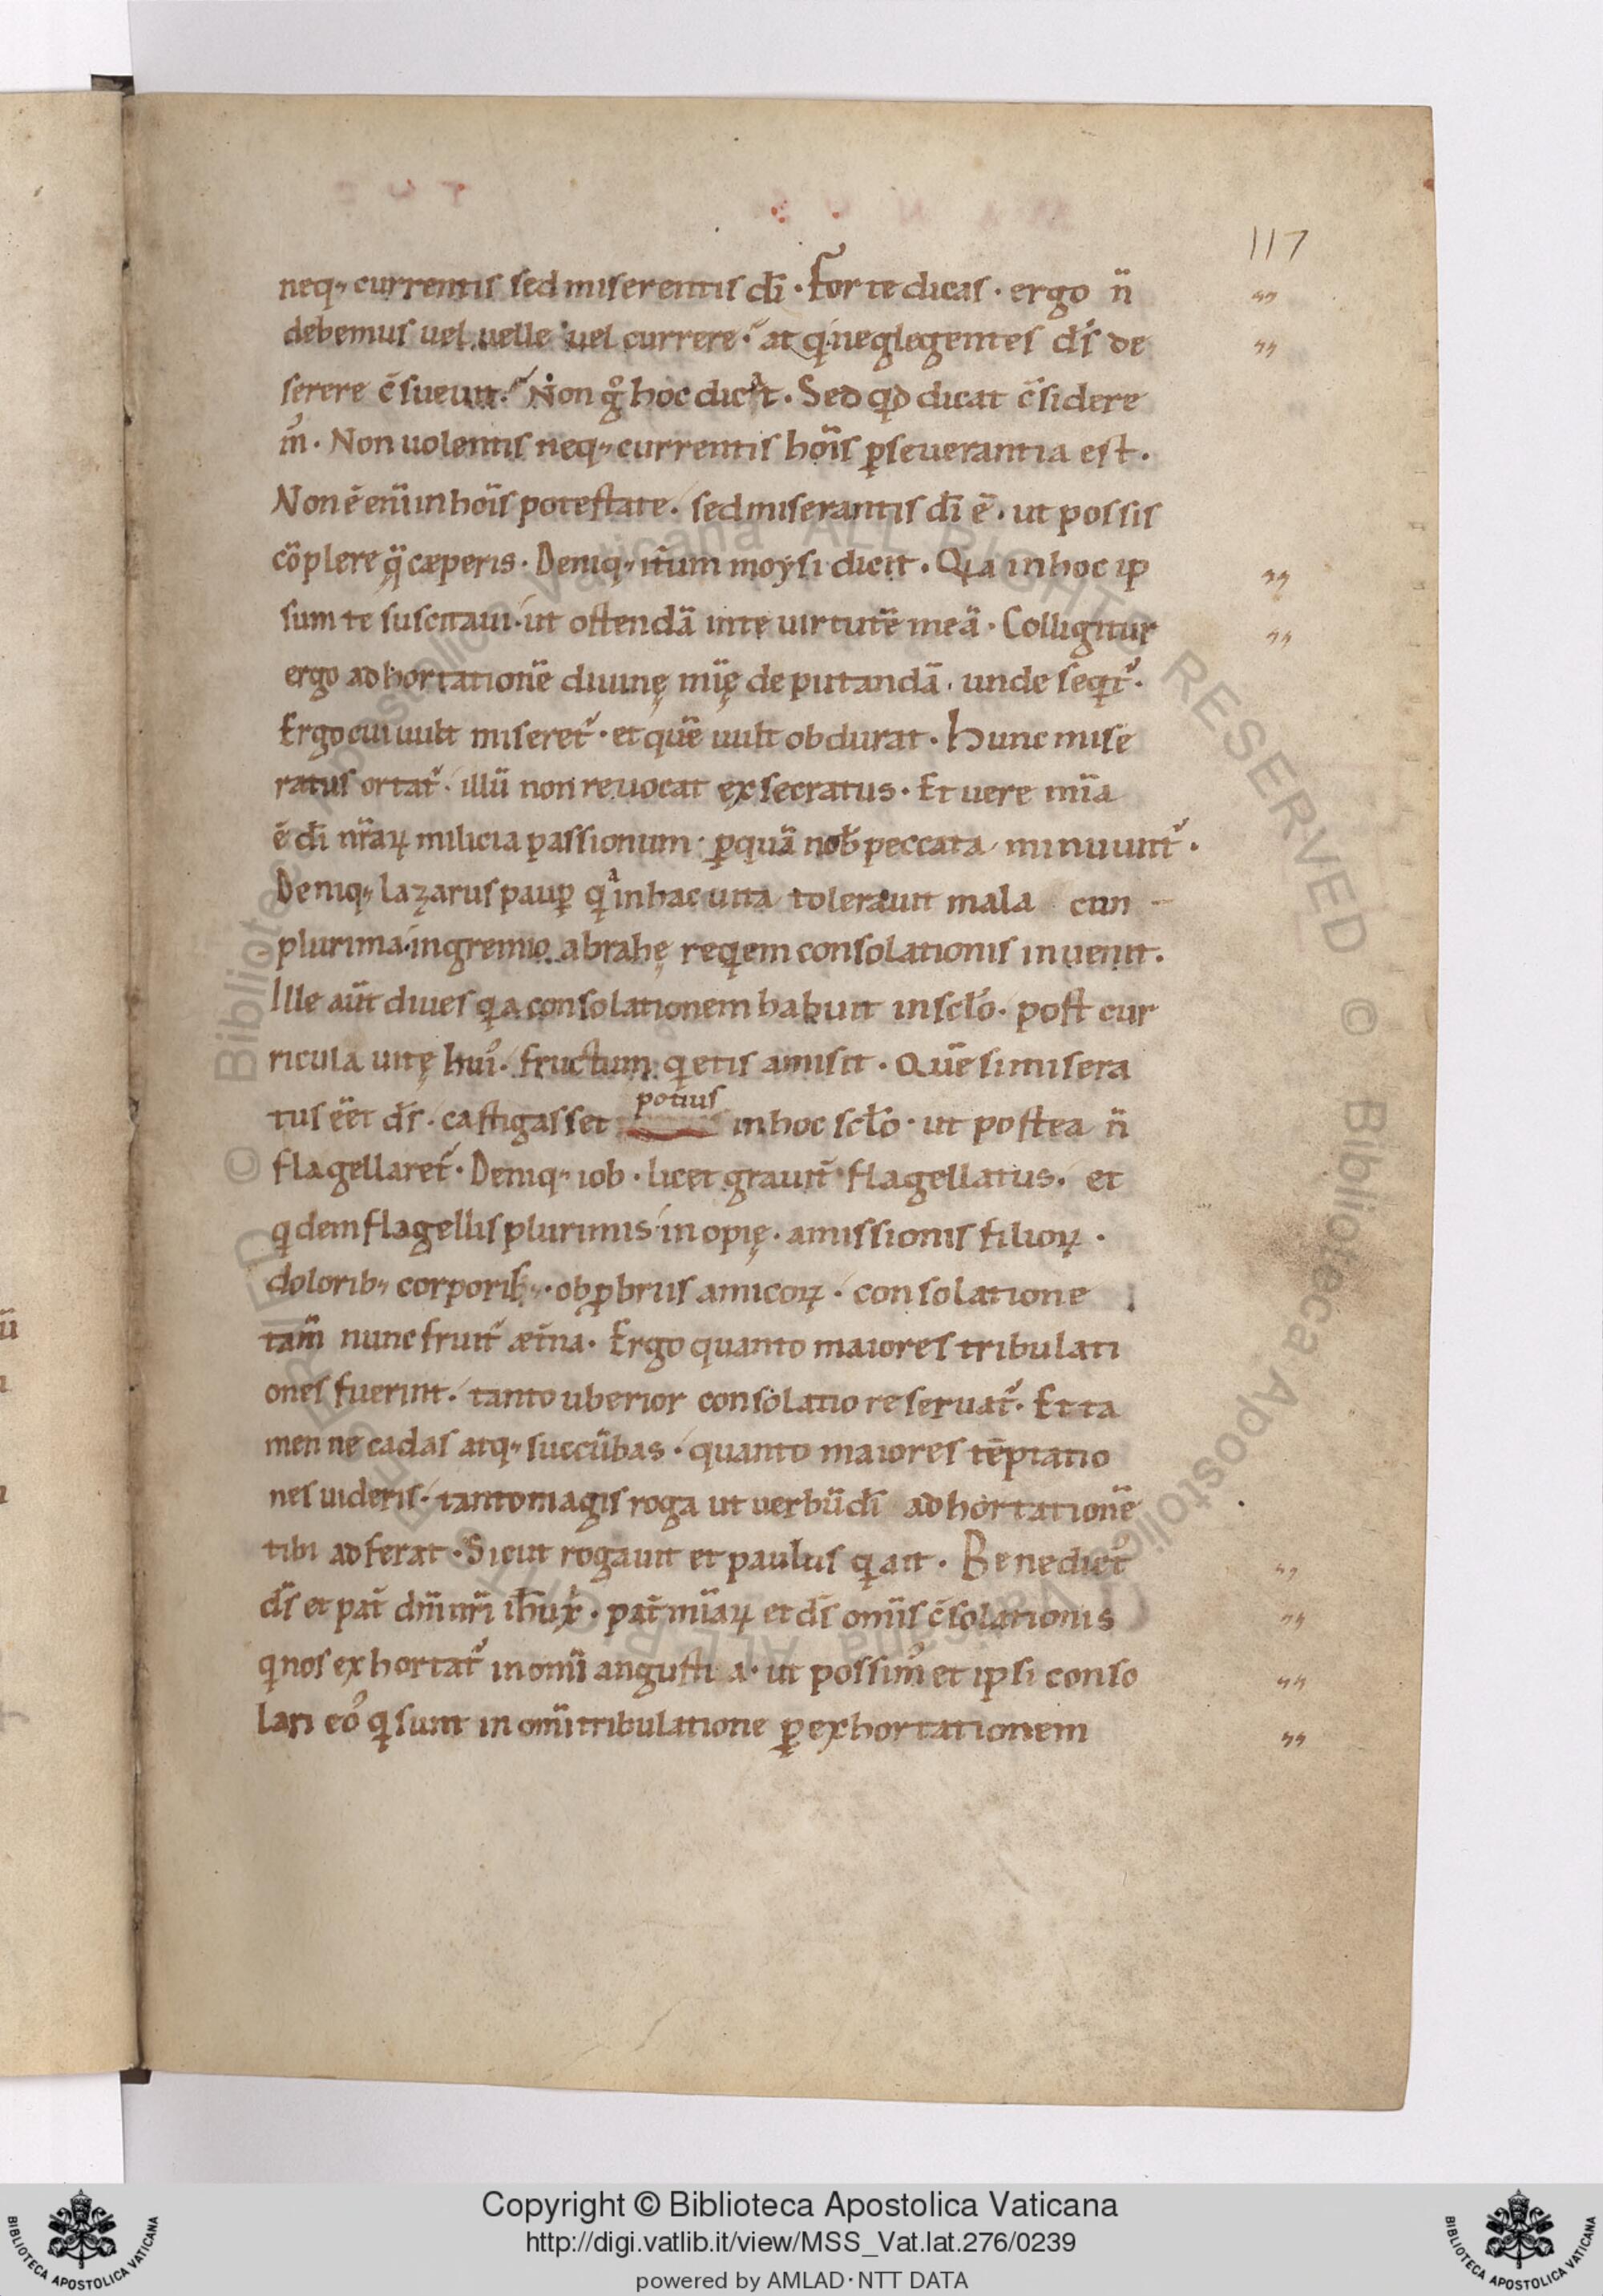 117
neq; currentis sed miserentis dī · Forte dicas · ergo n̄
debemus uel uelle uel currere · at q neglegentes d̄s de
serere c̄sueuit · Non g° hoc dicit · Sed qd dicat c̄sidere
m᾿ · Non uolentis neq; currentis hoīs ꝑseuerantia est ·
Non ē enī in hoīs potestate · sed miserantis dī ē · ut possis
cōplere q̄ cæperis · Deniq; it̄um moysi dicit · Quia in hoc ip
sum te suscitaui · ut ostendā in te uirtutē meā · Colligitur
ergo adhortationē diuinę mīę deputandā · unde seqt᾿ ·
Ergo cui uult miseret᾿ · et quē uult obdurat · Hunc mise
ratus ortat᾿ · illū non reuocat exsecratus · Et uere mīa
ē dī nr̄aꝝ milicia passionum · ꝑ quā nob̄ peccata minuunt᾿ ·
Deniq; lazarus paup̲ qa in hac uita tolerauit mala cun
plurima · in gremio abrahę requiem consolationis inuenit ·
Ille aūt diues qa consolationem habuit in scl̄o · post cur
ricula uitę hui᾿ · fructum quietis amisit · Quē si misera
tus eēt d̄s · castigasset potius in hoc scl̄o · ut postea n̄
flagellaret᾿ · Deniq; iob · licet grauit̄ flagellatus · et
qdem flagellis plurimis · inopię · amissionis filioꝝ ·
dolorib; corporis · obꝓbriis amicoꝝ · consolatione
tam̄ nunc fruit᾿ æt̄na · Ergo quanto maiores tribulati
ones fuerint · tanto uberior consolatio reseruat᾿ · Et ta
men ne cadas atq; succūbas · quanto maiores tēptatio
nes uideris · tanto magis roga ut uerbū dī adhortationē
tibi adferat · Sicut rogauit et paulus q ait · Benedict᾿
d̄s et pat̄ dn̄i nr̄i ih̄u xp̄i · pat̄ mīaꝝ et d̄s om̄is c̄solationis
q nos exhortat᾿ in om̄i angustia · ut possim᾿ et ipsi conso
lari eo᾿ q sunt in om̄i tribulatione ꝑ exhortationem
Copyright © Biblioteca Apostolica Vaticana
http://digi.vatlib.it/view/MSS_Vat.lat.276/0239
powered by AMLAD·NTT DATA